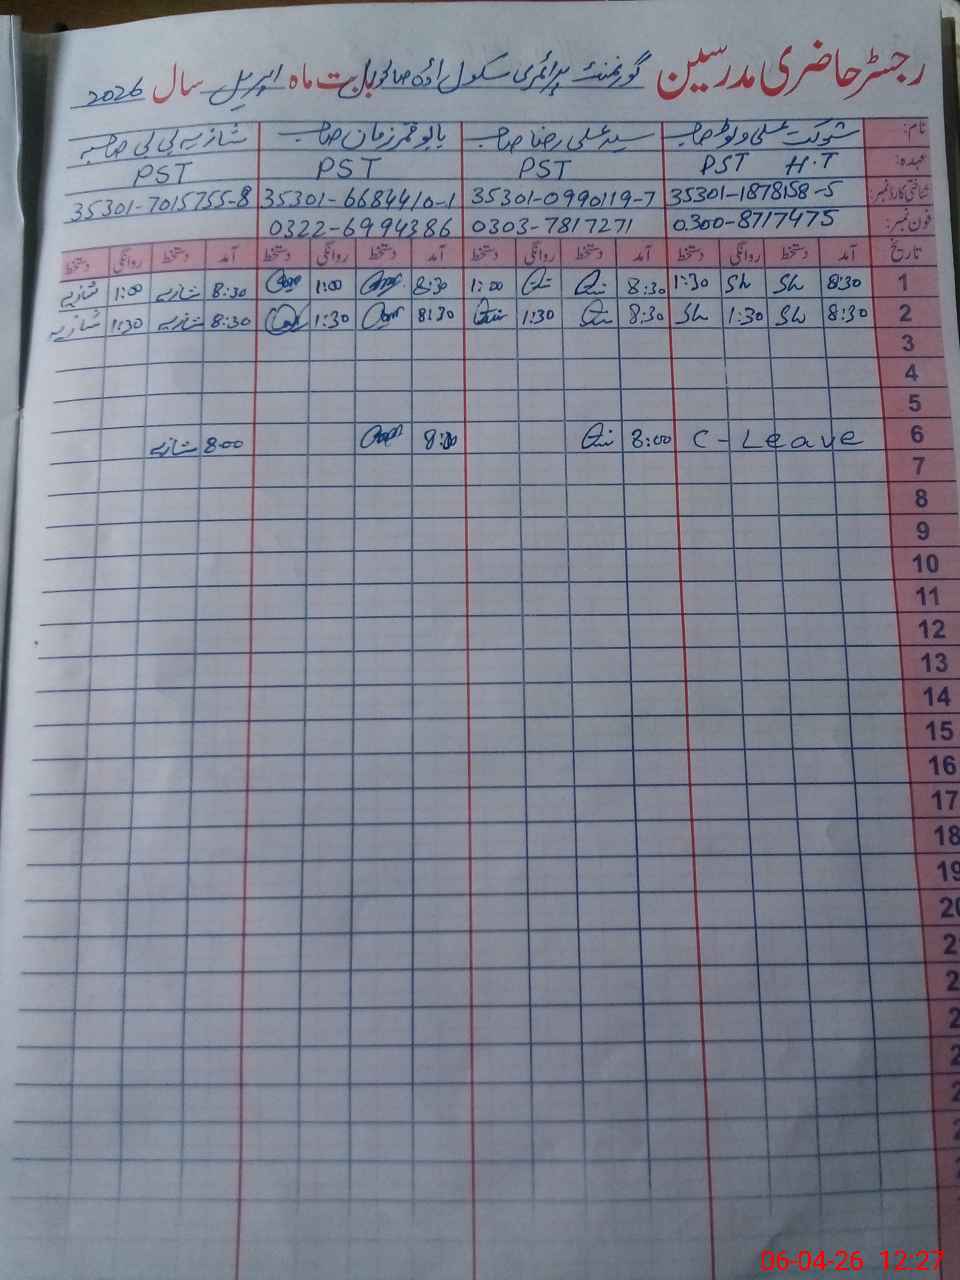 رجسٹر حاضری مدرسین گورنمنٹ پرائمری سکول اڈہ صالحو بابت ماہ اپریل سال 2026
نام: شوکت علی ولوٹ صاحب سید علی رضا صاحب بابو قمر زمان صاحب شازیہ بی بی صاحبہ
عہدہ: PST H.T PST PST PST
شناختی کارڈ نمبر: 35301-1878158-5 35301-0990119-7 35301-6684410-1 35301-7015755-8
فون نمبر: 0300-8717475 0303-7817271 0322-6994386
تاریخ آمد دستخط روانگی دستخط آمد دستخط روانگی دستخط آمد دستخط روانگی دستخط آمد دستخط روانگی دستخط
1 8:30 Sh Sh 1:30 8:30 1:00 8:30 1:00 8:30 شازیہ 1:00 شازیہ
2 8:30 Sh 1:30 Sh 8:30 1:30 8:30 1:30 8:30 شازیہ 1:30 شازیہ
3
4
5
6 C-Leave 8:00 8:00 8:00 شازیہ
7
8
9
10
11
12
13
14
15
16
17
18
19
20
2
2
2
2
2
2
2
06-04-26 12:27